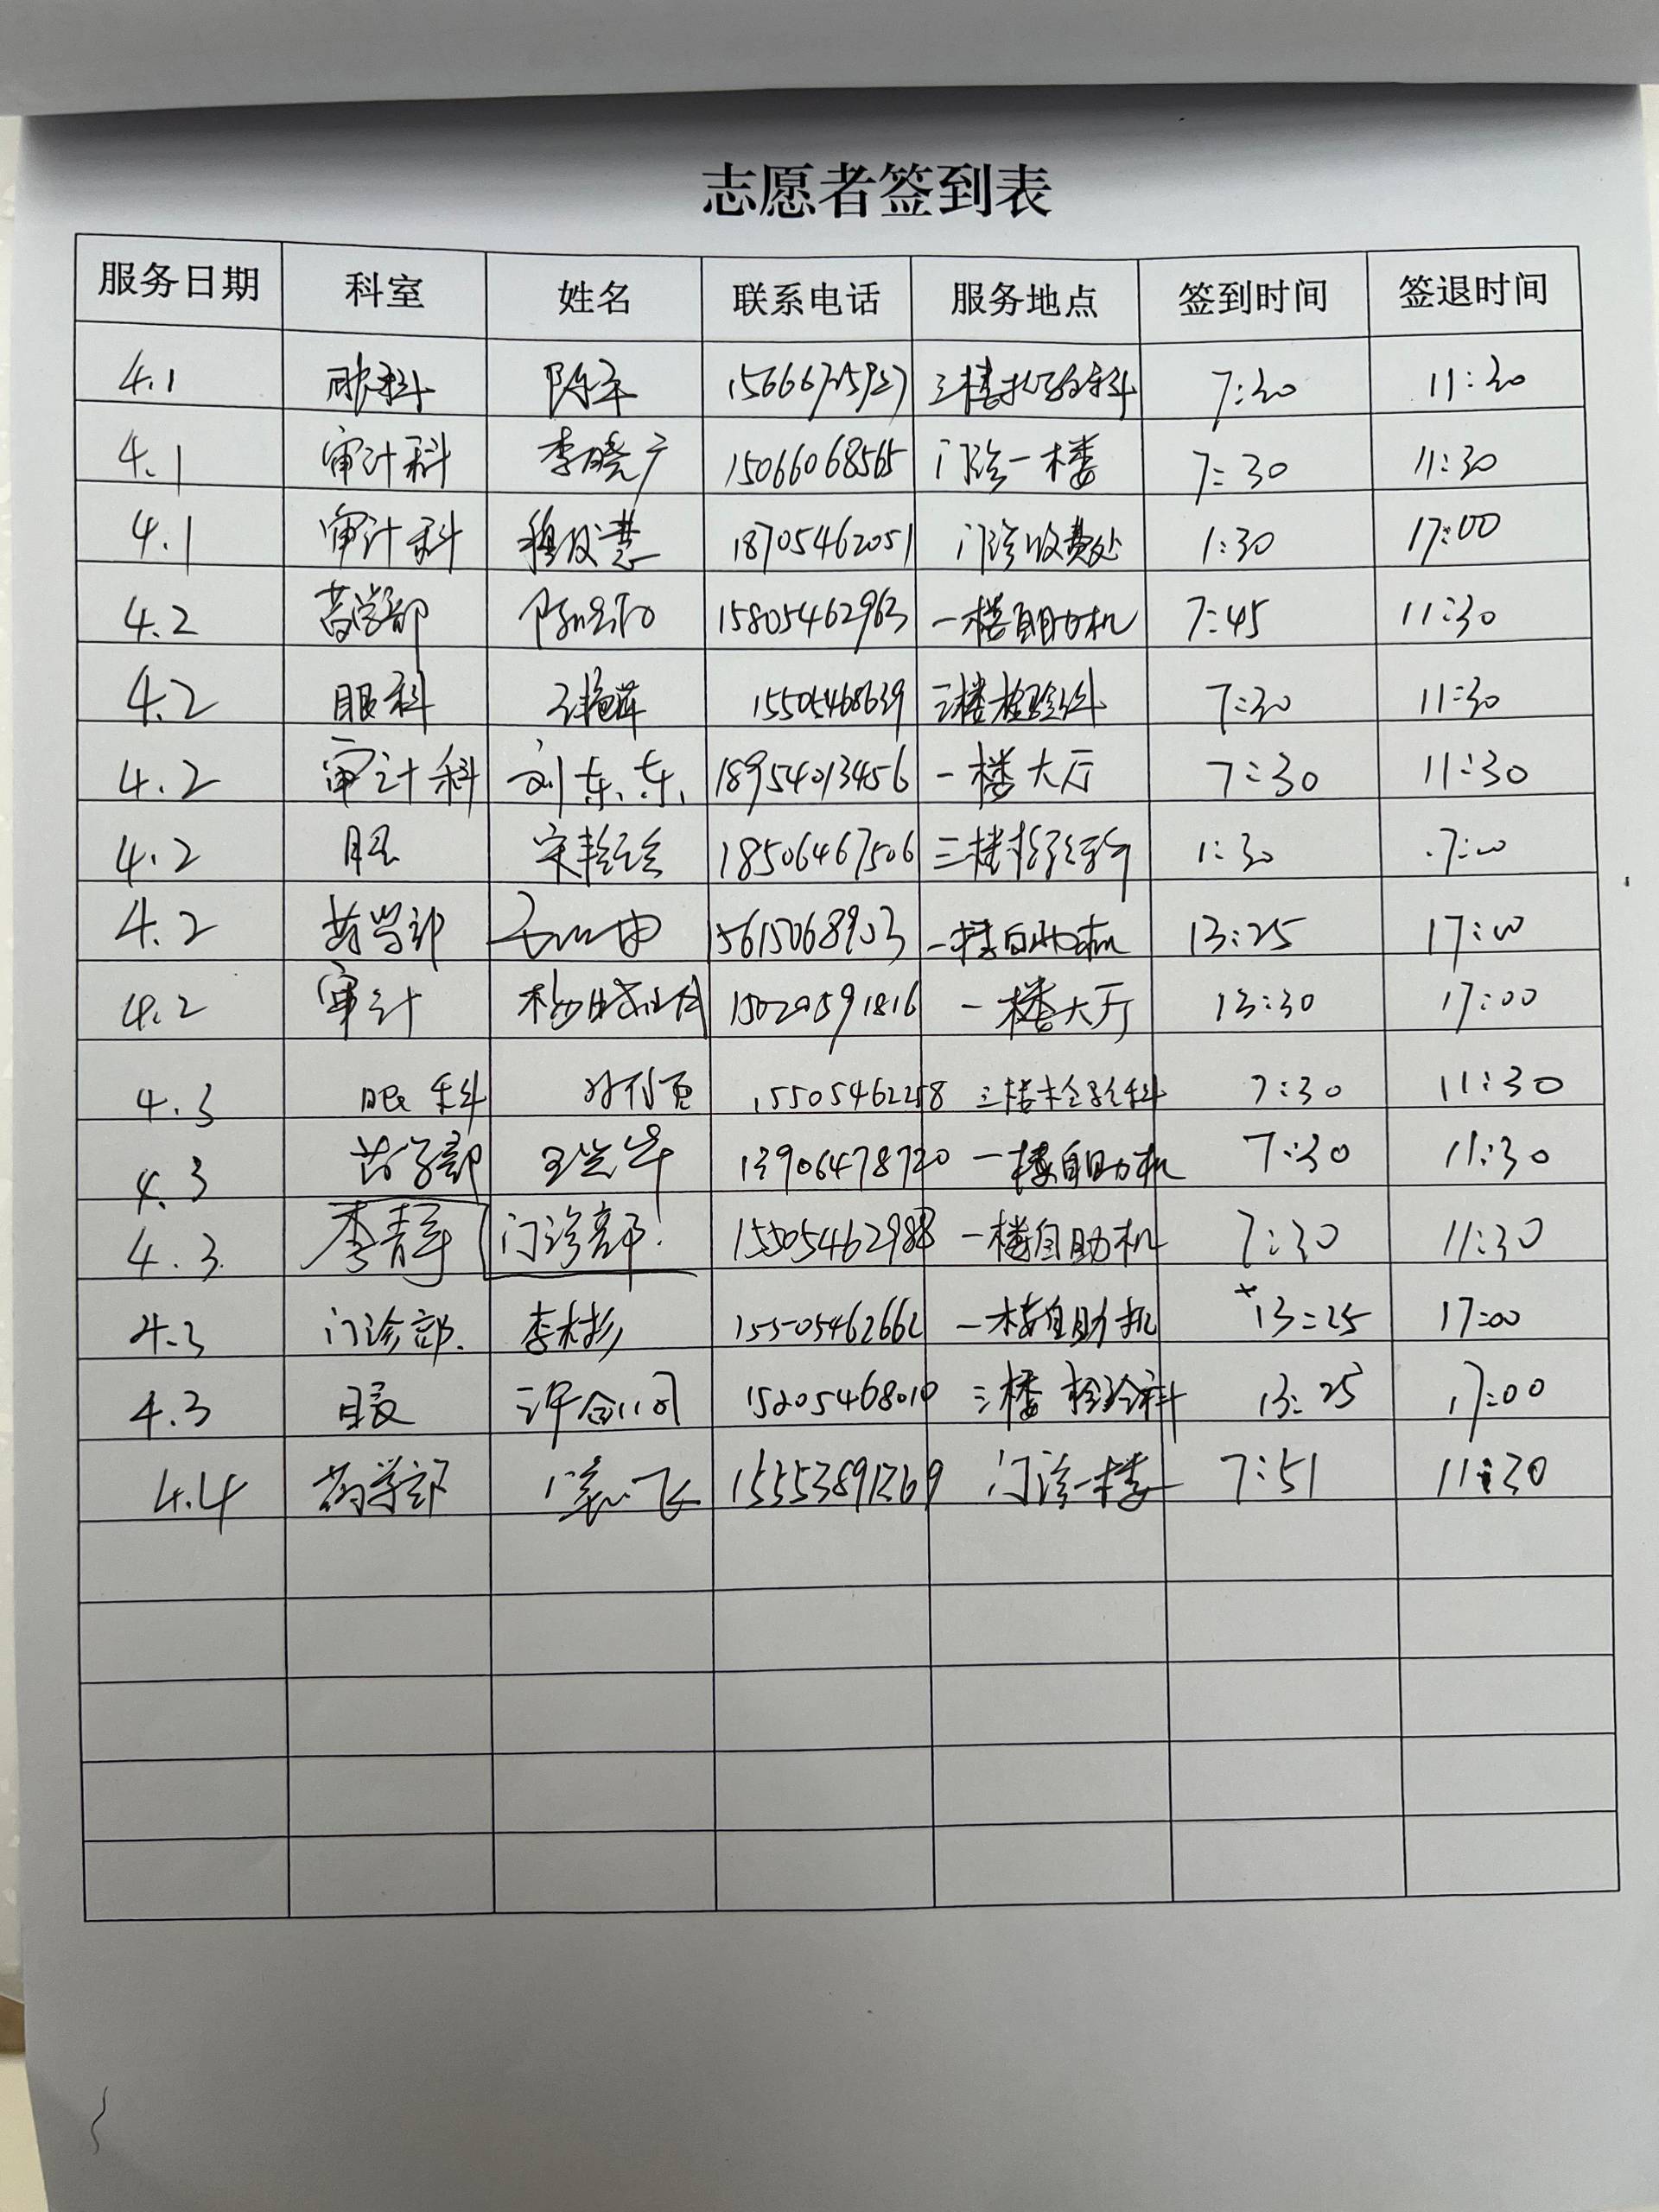 志愿者签到表
服务日期 科室 姓名 联系电话 服务地点 签到时间 签退时间
4.1 眼科 7:30 11:30
4.1 审计科 李晓广 15066068565 门诊一楼 7:30 11:30
4.1 审计科 18705462051 门诊收费处 1:30 17:00
4.2 药学部 15805462963 一楼自助机 7:45 11:30
4.2 眼科 15505468639 三楼检验科 7:30 11:30
4.2 审计科 刘东东 18954013456 一楼大厅 7:30 11:30
4.2 眼 18506467506 1:30
4.2 药学部 15615068903 一楼自助机 13:25 17:00
4.2 审计 15020591816 一楼大厅 13:30 17:00
4.3 眼科 15505462258 三楼检验科 7:30 11:30
4.3 药学部 13906478720 一楼自助机 7:30 11:30
4.3 李青军 门诊部 一楼自助机 7:30 11:30
4.3 门诊部 李彬彬 15505462662 一楼自助机 13:25 17:00
4.3 眼 15205468010 三楼检验科 13:25 17:00
4.4 药学部 15553891269 门诊一楼 7:51 11:30